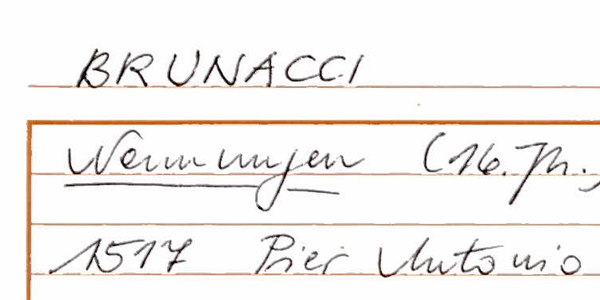 BRUNACCI
Nennungen (16. Jh.)
1517 Pier Antonio